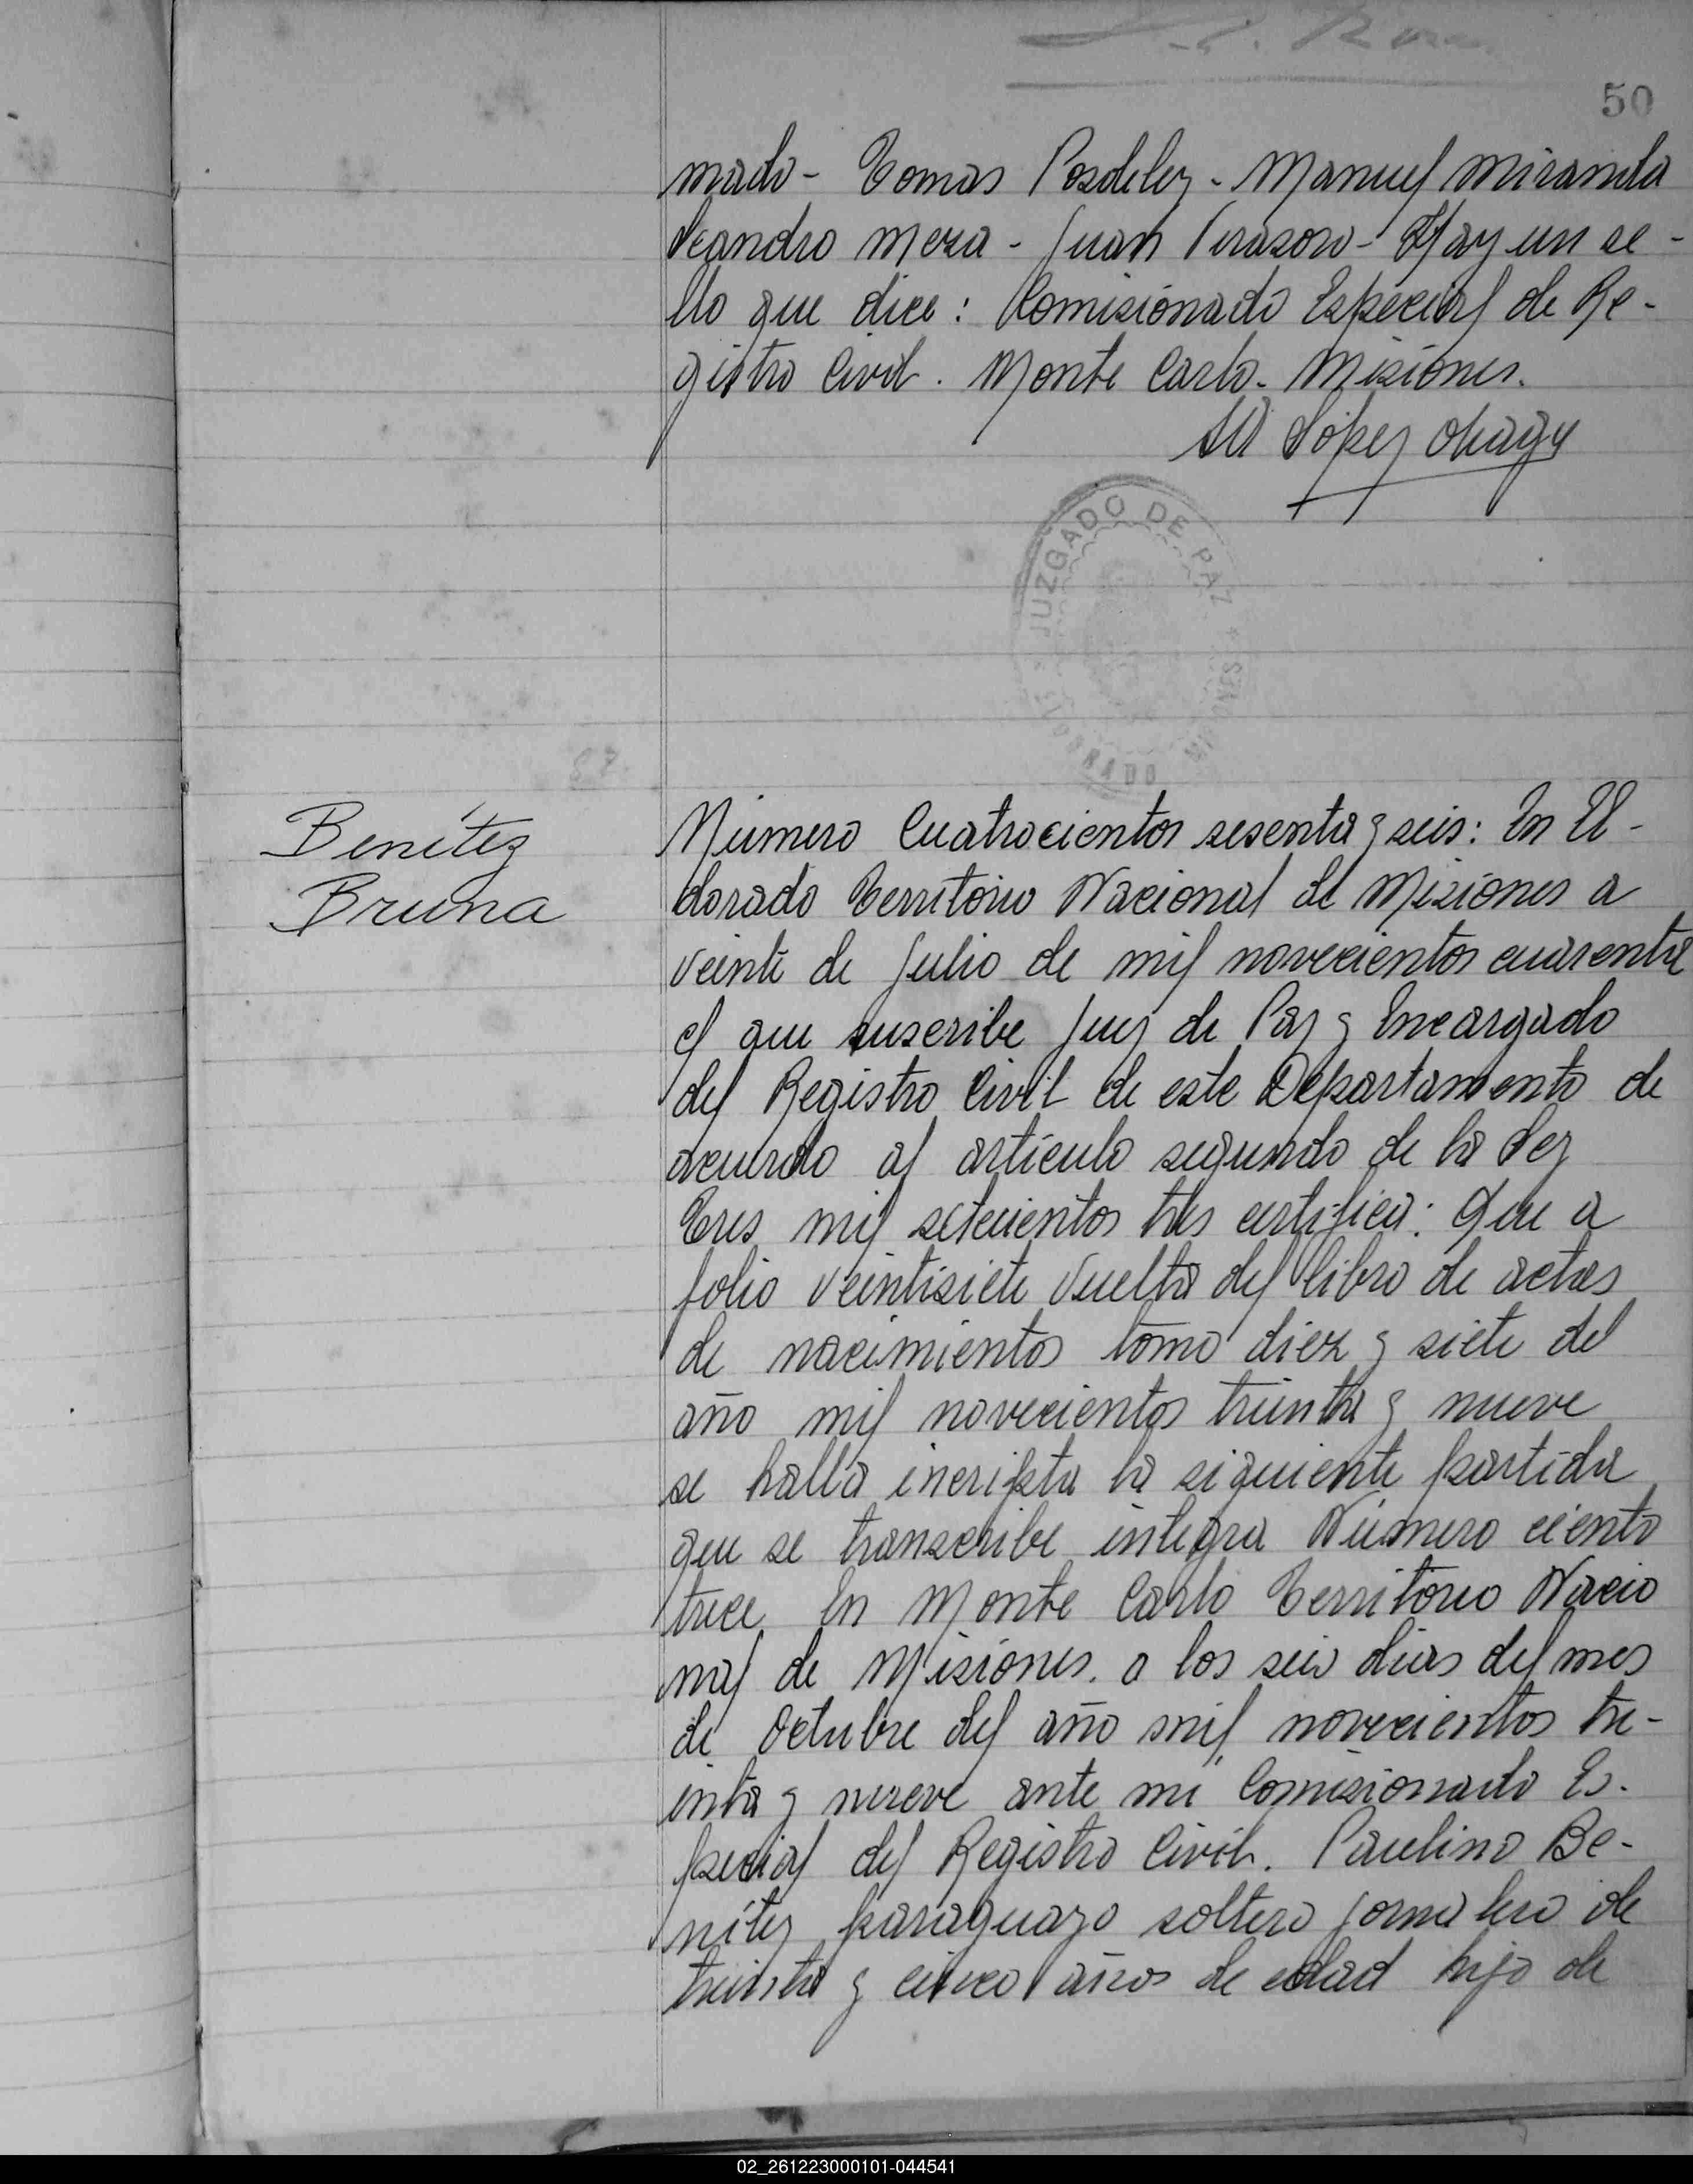 50
mado - Tomas Posdeley - Manuel Miranda
Leandro Meza - Juan Perasoro - Hay un se -
llo que dice : Comisionado Especial de Re -
gistro Civil . Monte Carlo - Misiones .
López
JUZGADO DE PAZ * MISIONES * ELDORADO
87
Benítez
Bruna
Número Cuatrocientos sesenta y seis : En El -
dorado Territorio Nacional de Misiones a
veinte de Julio de mil novecientos cuarenta
el que suscribe Juez de Paz y Encargado
del Registro Civil de este Departamento de
acuerdo al artículo segundo de la Ley
Tres mil setecientos tres certifica : Que a
folio veintisiete vuelta del libro de actas
de nacimientos tomo diez y siete del
año mil novecientos treinta y nueve
se halla incripta la siguiente partida
que se transcribe integra Número ciento
trece En Monte Carlo Territorio Nacio
nal de Misiones . a los seis dias del mes
de Octubre del año mil novecientos tre -
inta y nueve ante mi Comisionado Es -
pecial del Registro Civil . Paulino Be -
nítez paraguayo soltero jornalero de
treinta y cinco años de edad hijo de
02_261223000101-044541